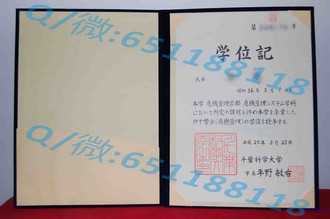 第 号
学位記
氏名
昭和56年3月7日生
本学 危機管理学部 危機管理システム学科
において所定の課程を修め本学を卒業した
ので学士(危機管理)の学位を授与する
平成20年3月20日
千葉科学大学
学長 平野敏右
Q/微:651188118
Q/微:651188118